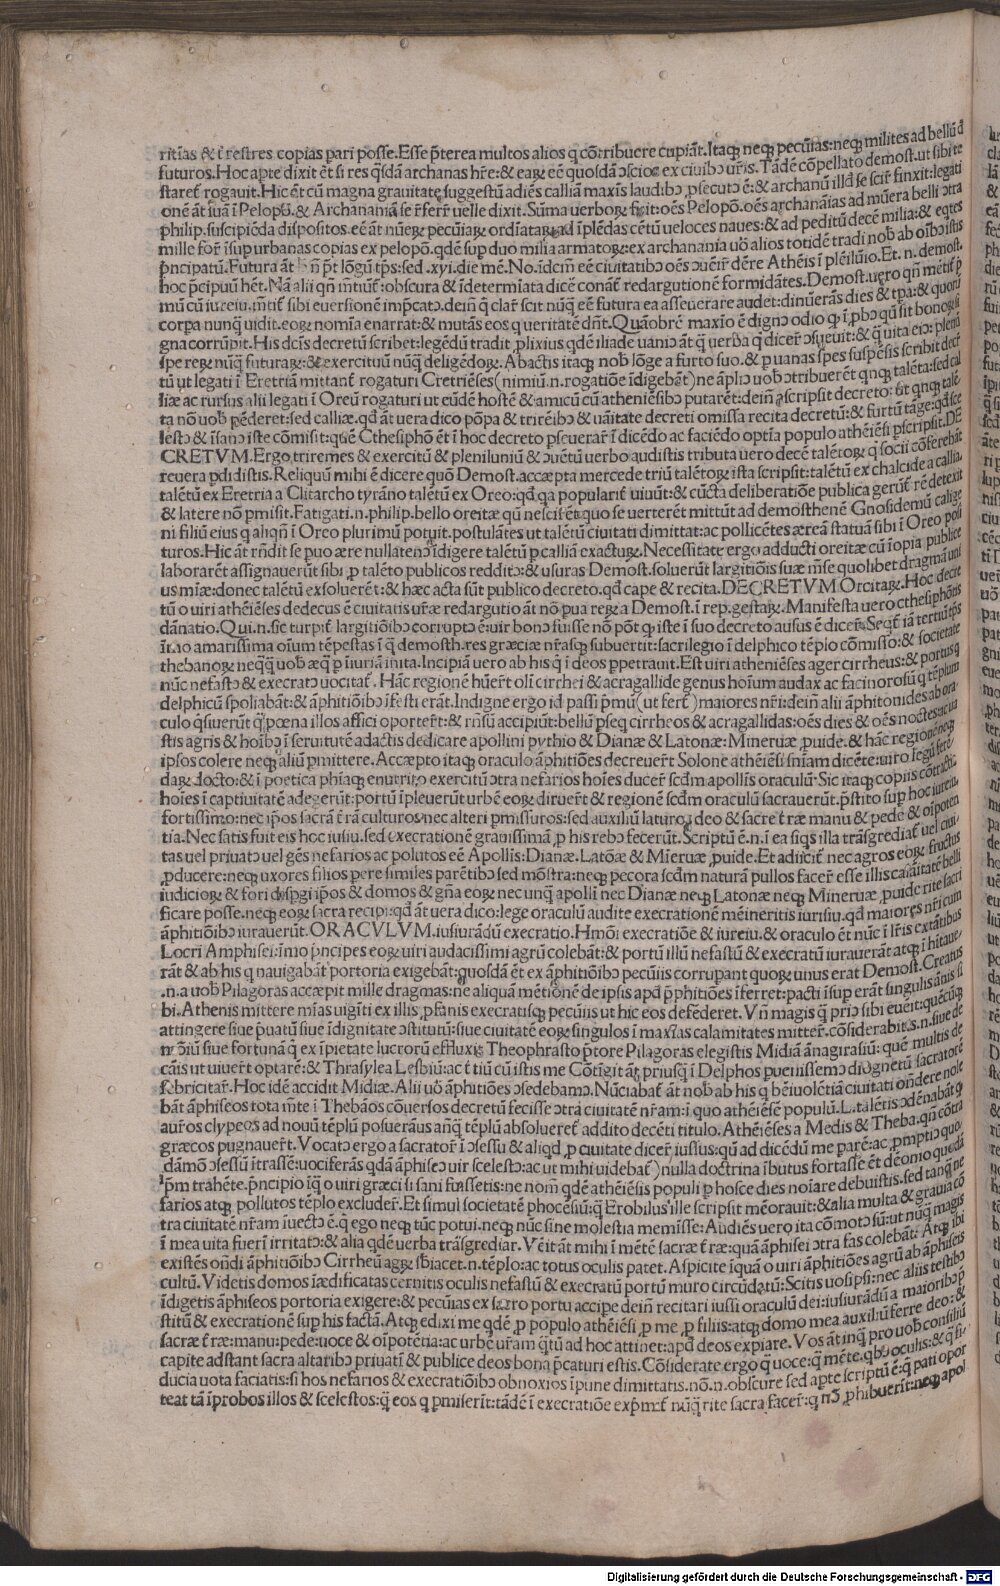 ritīas & t̄restres copias pari posse. Esse p̄terea multos alios q cōtribuere cupiāt. Itaqꝫ neqꝫ pecūias: neqꝫ milites ad bellū
futuros. Hoc apte dixit ēt si res qͥsdā archanas hr̄e: & eaꝝ eē quosdā ɔscios ex ciuibꝰ ur̄is. Tādē cōpellato demost. ut sibi te
staret̄ rogauit. Hic ēt cū magna grauitate suggestū adiēs calliā maxīs laudibꝰ ꝓsecutꝰ ē: & archanū illd̄ se scir̄ finxit: legati
onē āt suā ī Pelopō. & Archananiā se r̄ferr̄ uelle dixit. Sūma uerboꝝ fuit: oēs Pelopō. oēs archananias ad mūera belli ɔtra
philip. suscipiēda dispositos. eē āt nūeꝝ pecūiaꝝ ordīataꝝ: ad īplēdas cētū ueloces naues: & ad peditū decē milia: & eqtes
mille for̄ īsup urbanas copias ex pelopō. qdē sup duo milia armatoꝝ: ex archanania uō alios totidē tradi nob̄ ab oībꝰ istis
p̄ncipatū. Futura āt p̄t lōgū tp̄s: sed .xyi. die mē. No. īdcm̄ eē ciuitatibꝰ oēs ɔuēir̄ dēre Athēis ī plēilūio. Et. n. demost.
hoc p̄cipuū hēt. Nā alii qn̄ mētiūt̄: obscura & īdetermīata dicē conāt̄ redargutionē formidātes. Demost. uero qn̄ mētit̄ p
mū cū iureiu. mētit̄ sibi euersionē imp̄catꝰ. dein̄ q clar̄ scit nūq̄ eē futura ea asseuerare audet: dinūerās dies & tp̄a: & quoꝝ
corpa nunq̄ uidit. eoꝝ nomīa enarrat: & mutās eos q ueritatē dn̄t. Quāobrē maxīo ē dignꝰ odio
gna corrūpit. His dcīs decretū scribet: legēdū tradit ꝓlixius qdē iliade uaniꝰ āt q̄ uerba
spe reꝝ nūq̄ futuraꝝ: & exercituū nūq̄ deligēdoꝝ. Abactis itaqꝫ nob̄ lōge a furto suo. & p uanas spes suspēsis scribit decre
tū ut legati ī Eretriā mittant̄ rogaturi Cretriēses (nimiū. n. rogatiōe īdigebāt) ne āpliꝰ uob̄ ɔtribuerēt qnqꝫ talēta: sed cal
liæ ac rursus alii legati ī Oreū rogaturi ut eūdē hostē & amicū cū atheniēsibꝰ putarēt: dein̄
ta nō uob̄ pēderet: sed calliæ. qd̄ āt uera dico pōpa & trireībꝰ & uāitate decreti omissa recita decretū: & furtū tāge: qd̄ sce
lestꝰ & īsanꝰ iste cōmisit: quē Cthesiphō ēt ī hoc decreto pseuerar̄ ī dicēdo ac faciēdo optīa populo athēiēsi
CRETVM. Ergo triremes & exercitū & pleniluniū & ɔuētū uerbo audistis tributa uero decē talētoꝝ q̄ socii cōferebāt
reuera pdidistis. Reliquū mihi ē dicere quō Demost. accæpta mercede triū talētoꝝ ista scripsit: talētū ex chalcide a callia
talētū ex Eretria a Clitarcho tyrāno talētū ex Oreo: qd̄ qa popularit̄ uiuūt: & cūcta deliberatiōe publica gerūt̄ rē detexit
& latere nō pmisit. Fatigati. n. philip. bello oreitæ qū nescirēt quo se uerterēt mittūt ad demosthenē Gnosidemū
ni filiū eius q aliqn̄ ī Oreo plurimū potuit. postulātes ut talētū ciuitati dimittat: ac pollicētes æreā statuā sibi ī Oreo posi
turos. Hic āt rn̄dit se puo ære nullatenꝰ īdigere talētū p calliā exacturꝝ. Necessitate ergo adducti oreitæ cū īopia publice
laborarēt assignauerūt sibi ꝓ talēto publicos redditꝰ: & usuras Demost. soluerūt largitiōis suæ mēse quolibet dragmā uni
us miæ: donec talētū exsoluerēt: & hæc acta sūt publico decreto. qd̄ cape & recita. DECRETVM Orcitaꝝ. Hoc decre
tū o uiri athēiēses dedecus ē ciuitatis ur̄æ redargutio āt nō pua reꝝ a Demost. ī rep. gestaꝝ. Manifesta uero cthesiphōtis
dānatio. Qui. n. sic turpit̄ largitiōibꝰ corruptꝰ ē: uir bonꝰ fuisse nō pōt qͥ iste ī suo decreto ausus ē dicer̄. Seqt̄ iā tertiū tp̄s
īmo amarissima oīum tēpestas ī q̄ demosth. res græciæ nr̄asqꝫ subuertit: sacrilegio ī delphico tēplo cōmissꝰ: & societate
thebanoꝝ neqq̄ uob̄ æq̄ p īiuriā inita. Incipiā uero ab his q ī deos ppetrauit. Est uiri atheniēses ager cirrheus: & portus q
nūc nefastꝰ & execratꝰ uocitat̄. Hāc regionē hūer̄t olī cirrhei & acragallide genus hoīum audax ac facinorosū q tēplum
delphicū spoliabāt: & āphitiōibꝰ īfesti erāt. Indigne ergo id passi p̄mū (ut fert̄) maiores nr̄i: dein̄ alii āphitonides ab ora
culo qͥsiuerūt q̄ pœna illos affici oporter̄t: & rn̄sū accipiūt: bellū pseq̄ cirrheos & acragallidas: oēs dies & oēs noctes
stis agris & hoībꝰ ī seruitutē adactis dedicare apollini pythio & Dianæ & Latonæ: Mineruæ ꝓuide. & hāc regionē neqꝫ
ipsos colere neqꝫ aliū pmittere. Accæpto itaqꝫ oraculo āphitiōes decreuer̄t Solone athēiēsi sn̄iam dicēte: uiro
daꝝ docto: & ī poetica phīaqꝫ enutritꝰ exercitū ɔtra nefarios hoīes ducer̄ scd̄m apollīs oraculū. Sic itaqꝫ copiis cōtractis
hoīes ī captiuitatē adegerūt: portū īpleuerūt urbē eoꝝ diruer̄t & regionē scd̄m oraculū sacrauerūt. p̄stito sup hoc iureiu.
fortissimo: nec ip̄os sacrā t̄rā culturos: nec alteri pmissuros: sed auxiliū laturos deo & sacræ t̄ræ manu & pede & oīpoten
tia. Nec satis fuit eis hoc iusiu. sed execrationē grauissimā ꝓ his rebꝰ fecerūt. Scriptū ē. n. ī ea siqs illa trāsgrediat̄ uel ciui
tas uel priuatꝰ uel gēs nefarios ac polutos eē Apollīs: Dianæ. Latōæ & Mīeruæ ꝓuide. Et adiicit̄ nec agros eoꝝ fructus
ꝓducere: neqꝫ uxores filios pere similes parētibꝰ sed mōstra: neqꝫ pecora scd̄m naturā pullos facer̄ esse illis calāitatē belli
iudicioꝝ & fori dispgi ip̄os & domos & gn̄a eoꝝ nec unq̄ apollī nec Dianæ neqꝫ Latonæ neqꝫ Mineruæ ꝓuide rite sacri
ficare posse. neqꝫ eoꝝ sacra recipi: qd̄ āt uera dico: lege oraculū audite execrationē mēineritis iurisiu. qd̄ maiores nr̄i cum
āphitiōibꝰ iurauerūt. ORACVLVM. iusiurādū execratio. Hmōi execratiōe & iureiu. & oraculo ēt nūc ī lr̄is extātibus
Locri Amphisei: īmo p̄ncipes eoꝝ uiri audacissimi agrū colebāt: & portū illū nefastū & execratū iurauerāt atqꝫ
rāt & ab his q nauigabāt portoria exigebāt: quosdā ēt ex āphitiōibꝰ pecūiis corrupant quoꝝ unus erat Demost. Creatus
.n. a uob̄ Pilagoras accæpit mille dragmas: ne aliquā mētionē de ipsis apd̄ p̄phitiōes īferret: pacti īsup erāt singulis ānis si
bi. Athenis mittere mīas uigīti ex illis ꝓfanis execratisqꝫ pecūiis ut hic eos defēderet. Vn̄ magis q̄ priꝰ sibi euēit: quēcūqꝫ
attingere siue p̄uatū siue ī dignitate ɔstitutū: siue ciuitatē eoꝝ singulos ī maxīas calamitates mitter̄. cōsiderabitis. n. siue de
mōiū siue fortunā q̄ ex īpietate lucrorū effluxit. Theophrasto p̄tore Pilagoras elegistis Midiā ānagirasiū: quē multis de
cāis ut uiuer̄t optarē: & Thrasylea Lesbiū: ac tertiū cū istis me Cōtīgit āt: priusq̄ ī Delphos puēissemꝰ diognetū sacratorē
febricitar̄. Hoc idē accidit Midiæ. Alii uō āphitiōes ɔsedebamꝰ. Nūciabat̄ āt nob̄ ab his q bēiuolētiā ciuitati on̄dere nole
bāt āphiseos tota mēte ī Thebāos cōuersos decretū fecisse ɔtra ciuitatē nr̄am: ī quo athēiēsē populū. L. talētis ɔdēnabāt q̄
aur̄os clypeos ad nouū tēplū posuerāus anq̄ tēplū absolueret̄ addito decēti titulo. Athēiēses a Medis & Theba. qn̄ cōtra
græcos pugnauer̄t. Vocatꝰ ergo a sacrator̄ ī ɔsessū & aliqd̄ ꝓ ciuitate dicer̄ iussus: qū ad dicēdū me parē: ac ꝓmptiꝰ quo
dāmō ɔsessū ītrassē: uociferās qdā āphiseꝰ uir scelestꝰ: ac ut mihi uidebat̄ nulla doctrina ībutus fortasse ēt dēonio quodā
ip̄m trahēte. p̄ncipio īq̄t o uiri græci si sani fuissetis: ne nom̄ qdē athēiēsis populi p hosce dies noīare debuistis. sed tanq̄ ne
farios atqꝫ pollutos tēplo excluder̄. Et simul societatē phocēsiū: q̄ Erobilus ille scripsit mēorauit: & alia multa & grauia cō
tra ciuitatē nr̄am īuectꝰ ē. q̄ ego neqꝫ tūc potui. neqꝫ nūc sine molestia memīsse: Audiēs uero ita cōmotꝰ sū: ut nūq̄ magis
ī mea uita fuerī irritatꝰ: & alia qdē uerba trāsgrediar. Vēit āt mihi ī mētē sacræ t̄ræ: quā āphisei ɔtra fas colebāt. Atqꝫ ibi
existēs ondi āphitiōibꝰ Cirrheū agꝝ sbiacet. n. tēplo: ac totus oculis patet. Aspicite īquā o uiri āphitiōes agrū ab āphiseis
cultū. Videtis domos iædificatas cernitis oculis nefastū & execratū portū muro circūdatū: Scitis uosip̄si: nec aliis testibꝰ
īdigetis āphiseos portoria exigere: & pecūias ex sacro portu accipe dein̄ recitari iussi oraculū dei: iusiurādū a maioribꝰ p̄
stitū & execrationē sup his factā. Atqꝫ edixi me qdē ꝓ populo athēiēsi, ꝓ me, ꝓ filiis: atqꝫ domo mea auxiliū ferre deo: &
sacræ t̄ræ: manu: pede: uoce & oīpotētia: ac urbē ur̄am q̄tū ad hoc attinet: apd̄ deos expiare. Vos āt inq̄ pro uob̄ consiliū
capite adstant sacra altaribꝰ priuatī & publice deos bona p̄caturi estis. Cōsiderate ergo q̄ uoce: q̄ mēte. qbꝰ oculis: &
ducia uota faciatis: si hos nefarios & execratiōibꝰ obnoxios īpune dimittatis. nō. n. obscure sed apte scriptū ē: q̄ pati opor
teat tā īprobos illos & scelestos: q̄ eos q pmiserīt: tādē ī execratiōe exp̄mit̄ nūq̄ rite sacra facer̄: q nō ꝓhibuerīt: neqꝫ apol
Digitalisierung gefördert durch die Deutsche Forschungsgemeinschaft - DFG